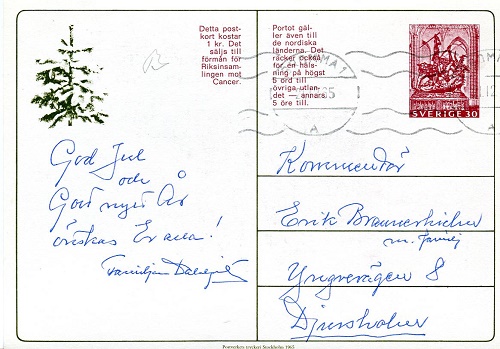 Detta post-
kort kostar
1 kr. Det
säljs till
förmån för
Riksinsam-
lingen mot
Cancer.
Portot gäl-
ler även till
de nordiska
länderna. Det
räcker också
för en häls-
ning på högst
5 ord till
övriga utlan-
det — annars
5 öre till.
MMA 1
65
A
SVERIGE 30
God Jul
och
Gott nytt År
önskas Er alla!
Familjen
Kommendör
Erik Braunerhielm
m. familj
Yngvevägen 8
Djursholm
Postverkets tryckeri Stockholm 1965